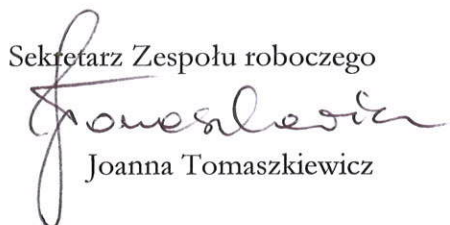 Sekretarz Zespołu roboczego
Tomaszkiewicz
Joanna Tomaszkiewicz